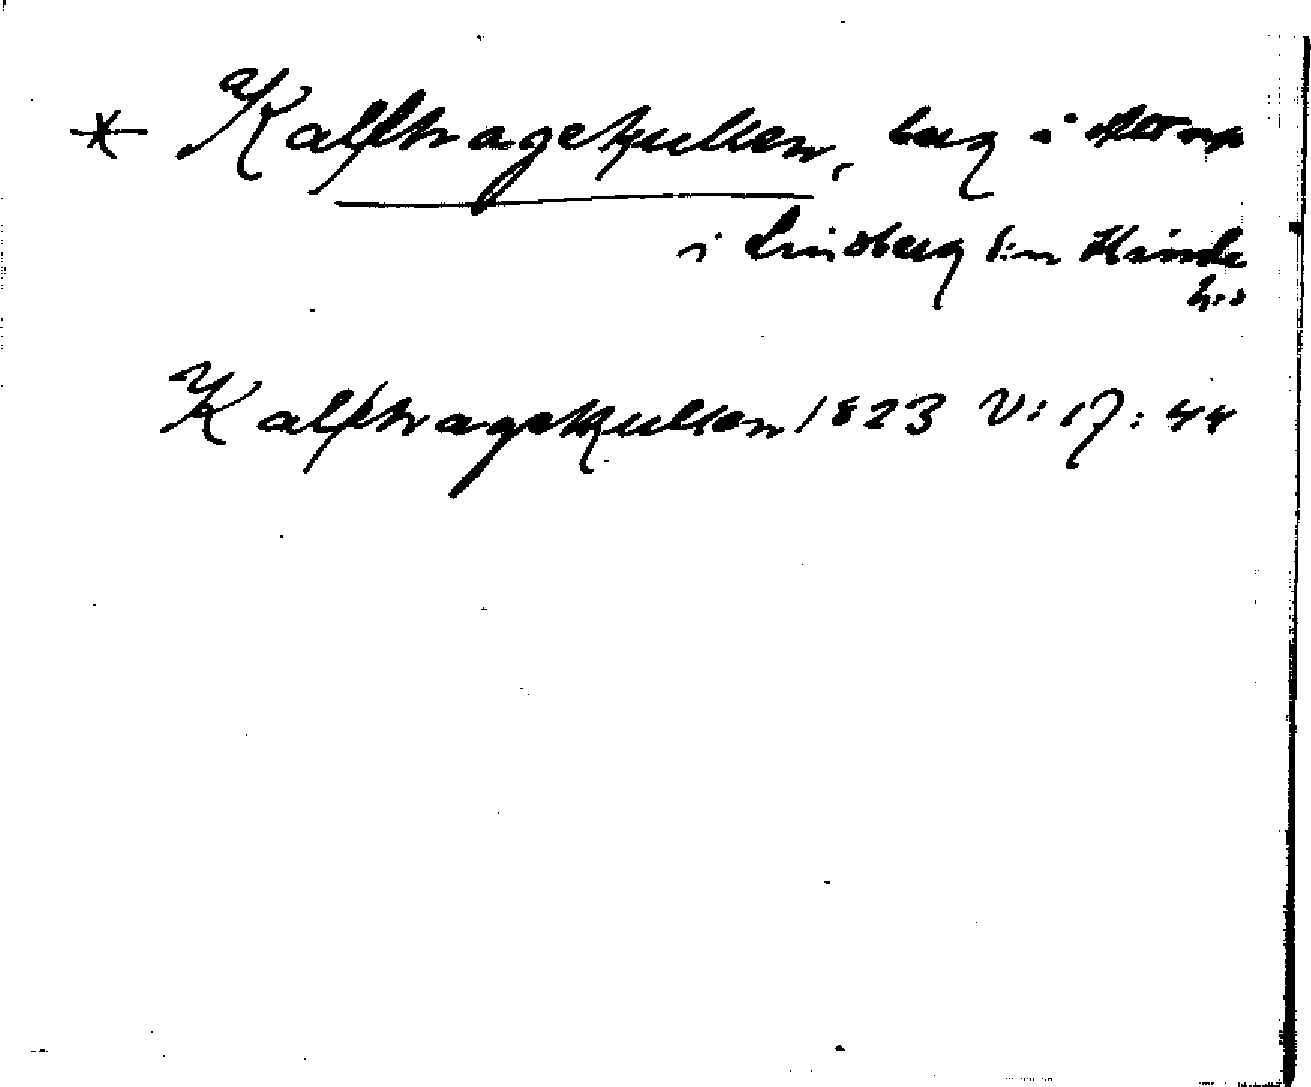 * Kalfhagekullen, berg i Åstorp
i Lindberg s:n Himle
h:d
Kalfhagekullen 1823 V: 17: 44